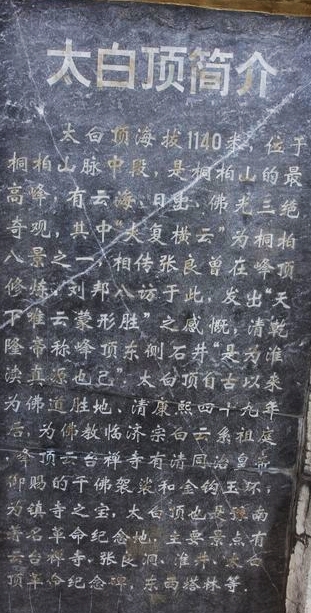 太白顶简介
太白顶海拔1140米，位于
桐柏山脉中段，是桐柏山的最
高峰，有云海、日出、佛光三绝
奇观，其中“大复横云”为桐柏
八景之一，相传张良曾在峰顶
修炼，刘邦八访于此，发出“天
下唯云蒙形胜”之感慨，清乾
隆帝称峰顶东侧石井“是为淮
渎真源也已”。太白顶自古以来
为佛道胜地、清康熙四十九年
后，为佛教临济宗白云系祖庭
，峰顶云台禅寺有清同治皇帝
御赐的千佛袈裟和金钩玉环，
为镇寺之宝，太白顶也是豫南
著名革命纪念地，主要景点有
云台禅寺、张良洞、淮井、太白
顶革命纪念碑，东西塔林等．